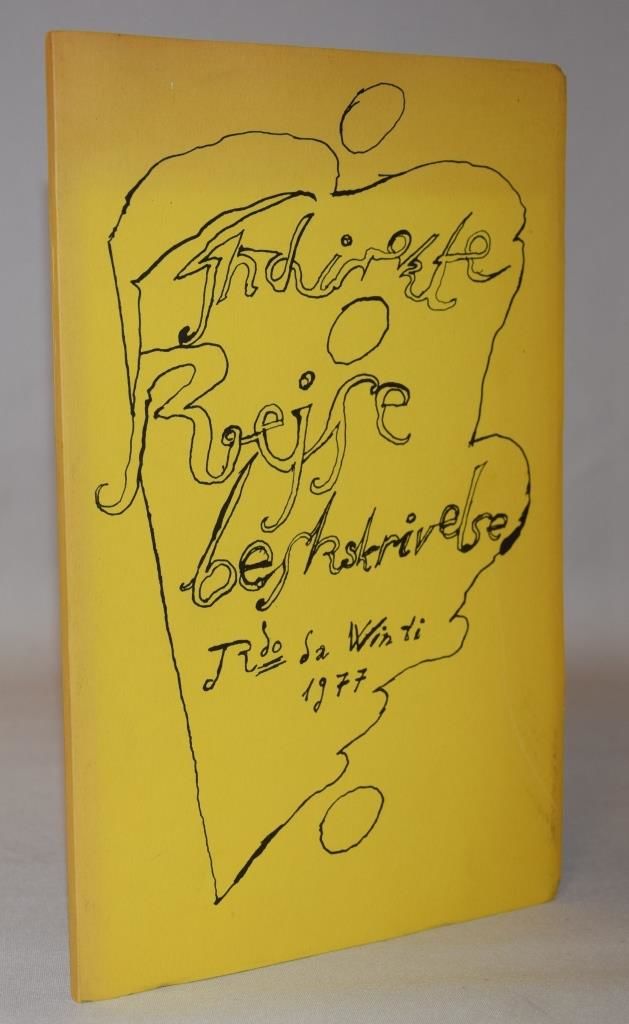 Indirekte
Rejse
beskskrivelse
JRdo da Winti
1977